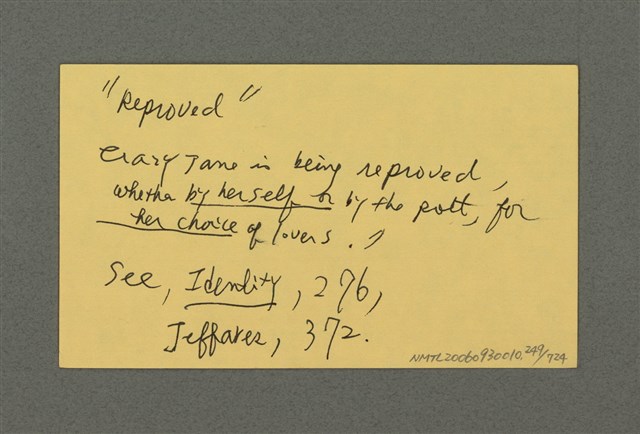 "Reproved"
Crazy Jane is being reproved,
whether by herself or by the poet, for
her choice of lovers.
See, Identity, 276,
Jeffares, 372.
NMTL20060930010.249/724